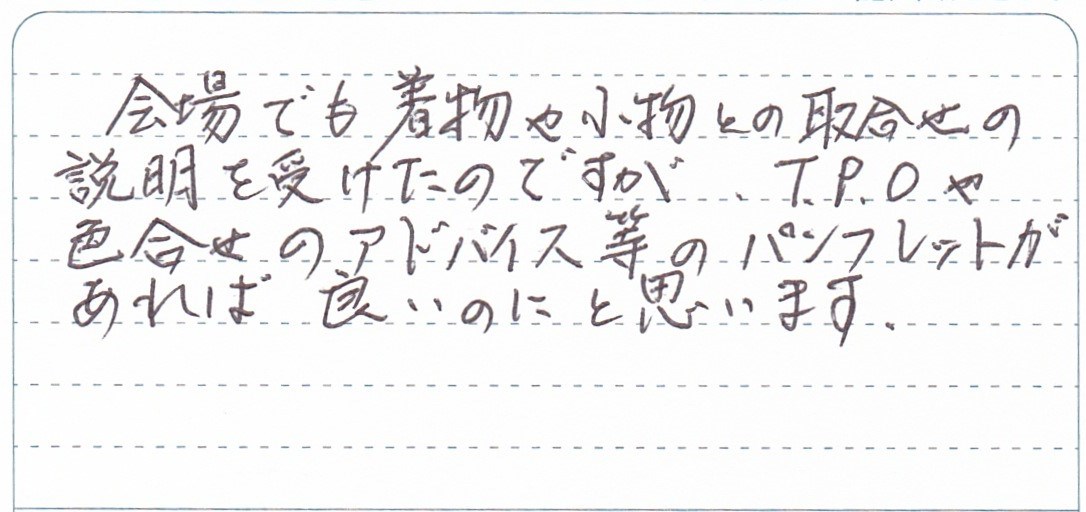 会場でも着物や小物との取合せの
説明を受けたのですが、T.P.Oや
色合せのアドバイス等のパンフレットが
あれば良いのにと思います.